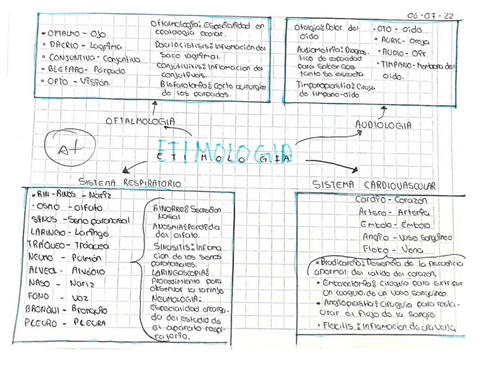 06-07-22
• OFTALMO - Ojo
• DACRIO - Lagrima
• CONJUNTIVA - Conjuntiva
• BLEFARO - Párpado
• OPTO - Visión
Oftalmología: Especialidad en
saco lagrimal.
Conjuntivitis: Inflamacion del
conjuntivas.
de los parpados.
Otalgia: Dolor del
oido
tico de
Timpanoplastia: Cirugía
de timpano-oido
• OTO - Oido
• AURIC - Oreja
• AUDIO - Oir
• TIMPANO - Membrana del
oido.
OFTALMOLOGIA
AUDIOLOGIA
A+
ETIMOLOGIA
SISTEMA RESPIRATORIO
SISTEMA CARDIOVASCULAR
• RIN - RINOS - Nariz
• OSMO - Olfato
• SINOS - Seno paranasal
LARINGO - Laringe
TRÁQUEO - Tráquea
NEUMO - Pulmón
ALVEOL - Alvéolo
NASO - Nariz
FONO - Voz
BRONQUI - Bronquio
PLEURO - PLEURA
RINORREA: Secreción
nasal
ANOSMIA: Perdida
del olfato.
SINUSITIS: Inflama-
cion de los senos
paranasales.
LARINGOSCOPIA:
Procedimiento para
observar la laringe
NEUMOLOGIA:
Especialidad
del estudio de
el aparato respi-
ratorio.
Cardio - Corazón
Arterio - Arteria
Embolo - Embolo
Angio - Vaso Sanguineo
Flebo - Vena
• Bradicardia: Descenso de la frecuencia
anormal del latido del corazón.
• Embolectomia: Cirugia para extirpar
un coagulo de un vaso sanguineo.
• Angioplastia: Cirugia para resta-
urar el flujo de la sangre
• Flebitis: Inflamacion de una vena